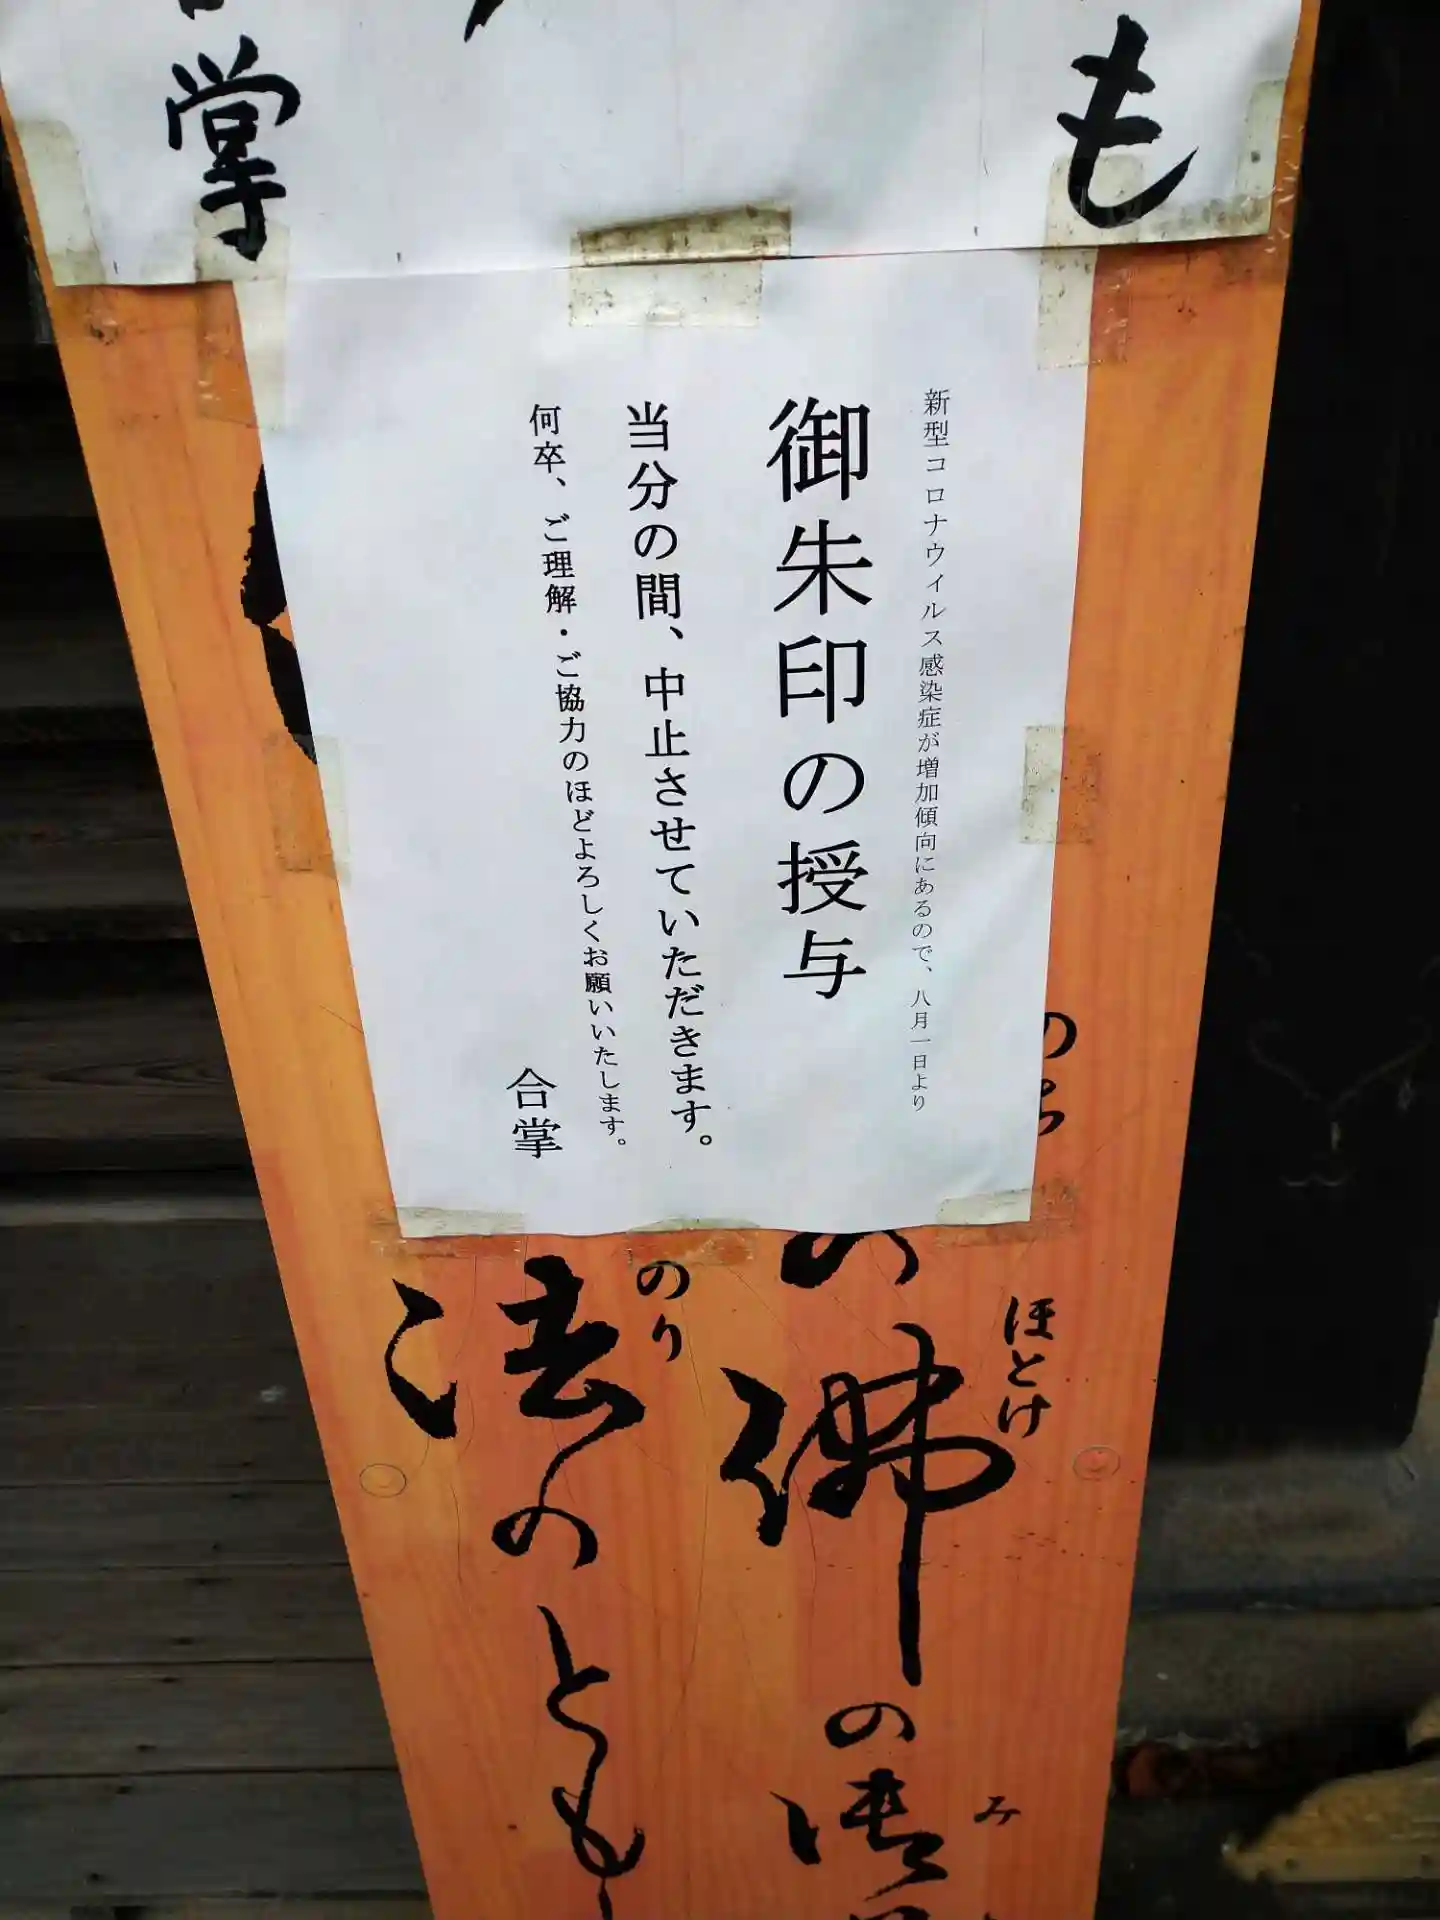 も
掌
新型コロナウィルス感染症が増加傾向にあるので、八月一日より
御朱印の授与
当分の間、中止させていただきます。
何卒、ご理解・ご協力のほどよろしくお願いいたします。
合掌
ほとけ
み
の佛の御
のり
法のとも